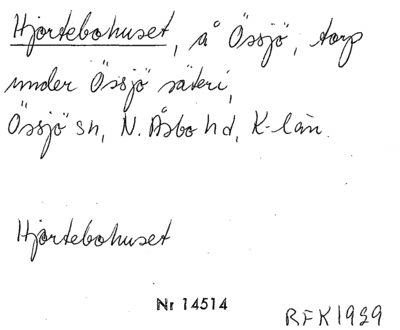 Hjortebohuset, å Össjö, torp
under Össjö säteri,
Össjö sn, N. Åsbo hd, K-län.
Hjortebohuset
Nr 14514
RFK1929